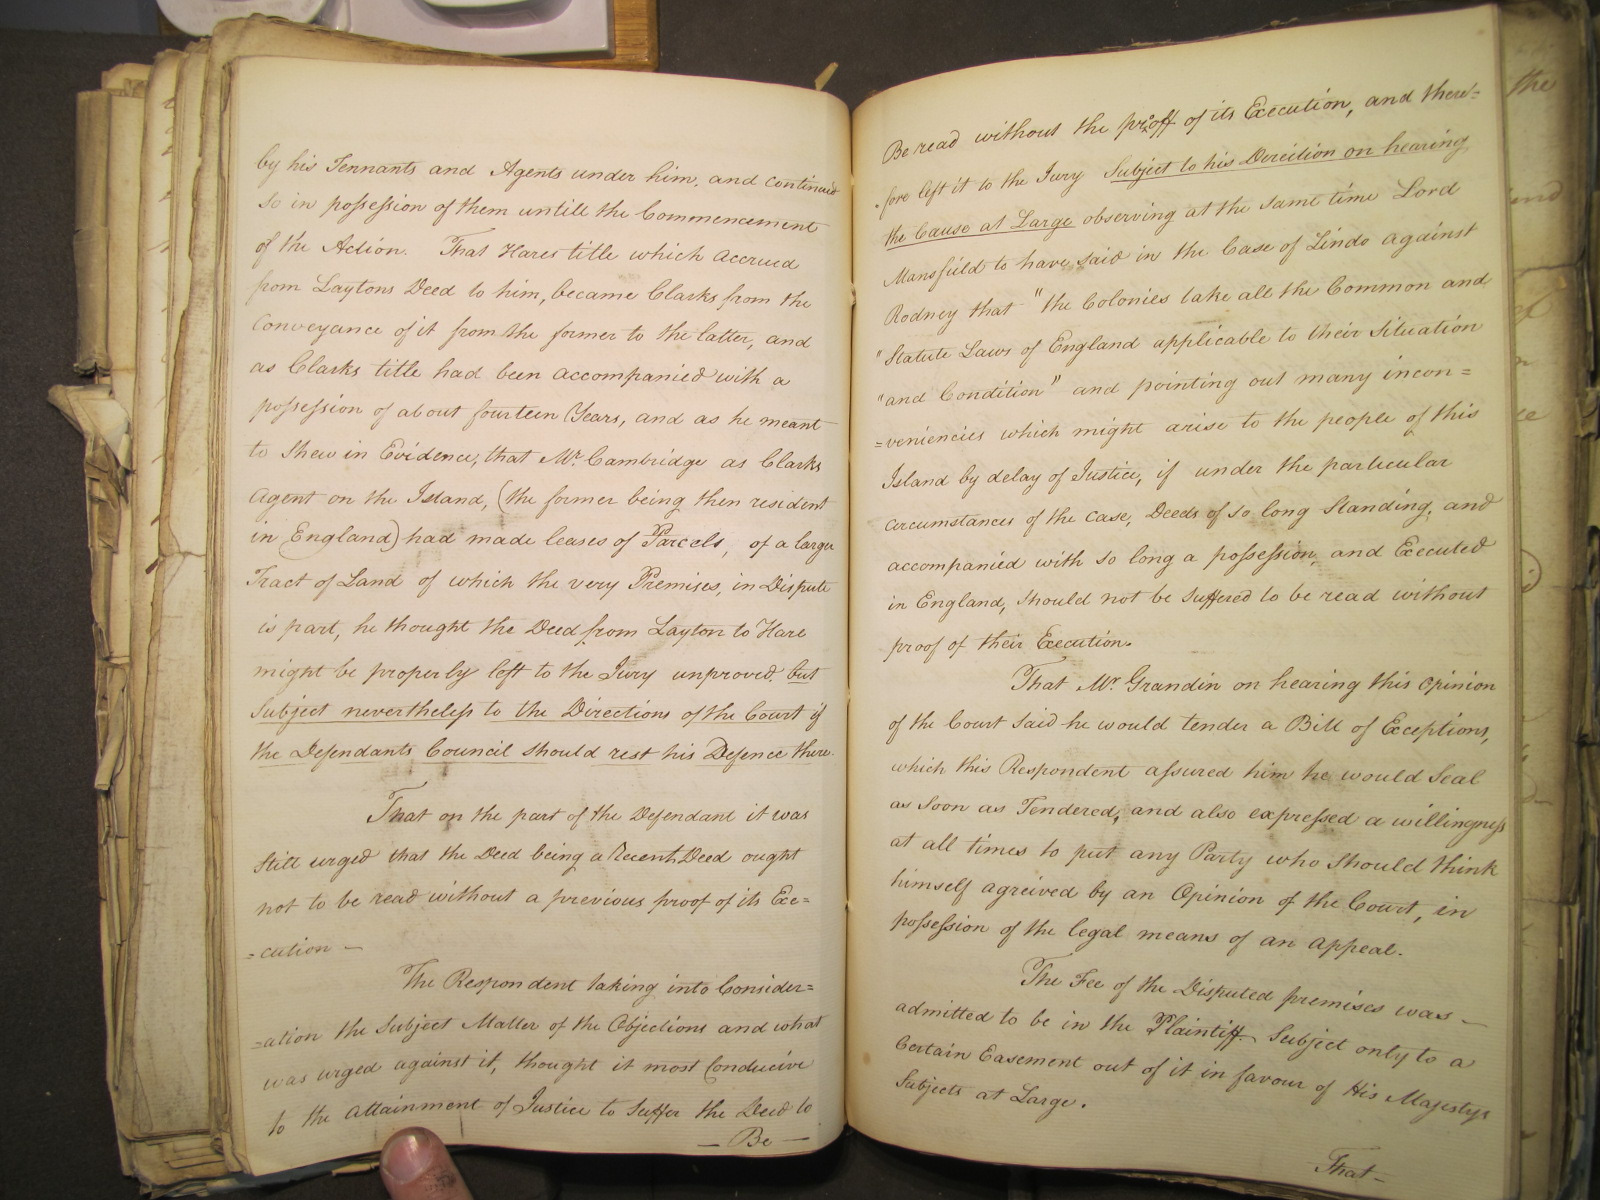 by his Tennants and Agents under him, and continued
so in possession of them untill the Commencement
of the Action. That Hares title which accrued
from Laytons Deed to him, became Clarks from the
Conveyance of it from the former to the latter, and
as Clarks title had been accompanied with a
possession of about fourteen Years, and as he meant
to Shew in Evidence, that Mr. Cambridge as Clarks
Agent on the Island, (the former being then resident
in England) had made leases of Parcels, of a larger
Tract of Land of which the very Premises, in Dispute
is part, he thought the Deed from Layton to Hare
might be properly left to the Jury unproved, but
Subject nevertheless to the Directions of the Court if
the Defendants Council should rest his Defence there.
That on the part of the Defendant it was
Still urged that the Deed being a Recent Deed ought
not to be read without a previous proof of its Exe=
=cution —
The Respondent taking into Consider=
=ation the Subject Matter of the Objections and what
was urged against it, thought it most Conducive
to the attainment of Justice to Suffer the Deed to
— Be —
Be read without the proff of its Execution, and there=
fore left it to the Jury Subject to his Direction on hearing
the Cause at Large observing at the same time Lord
Mansfield to have said in the Case of Lindo against
Rodney that "the Colonies take all the Common and
"Statute Laws of England applicable to their Situation
"and Condition" and pointing out many incon=
=veniencies which might arise to the people of this
Island by delay of Justice, if under the particular
circumstances of the case, Deeds of so long Standing, and
accompanied with so long a possession, and Executed
in England, should not be Suffered to be read without
proof of their Execution.
That Mr. Grandin on hearing this opinion
of the Court said he would tender a Bill of Exceptions,
which this Respondent assured him he would Seal
as soon as Tendered, and also expressed a willingness
at all times to put any Party who should think
himself agreived by an Opinion of the Court, in
possession of the legal means of an appeal.
The Fee of the Disputed premises was —
admitted to be in the Plaintiff Subject only to a
Certain Easement out of it in favour of His Majestys
Subjects at Large.
That —
the